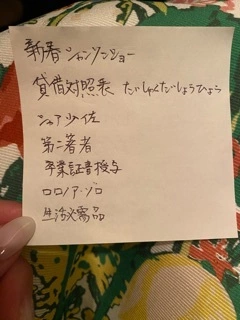 新春シャンソンショー
貸借対照表 たいしゃくたいしょうひょう
シャア少佐
第二著者
卒業証書授与
ロロノア・ゾロ
生活必需品